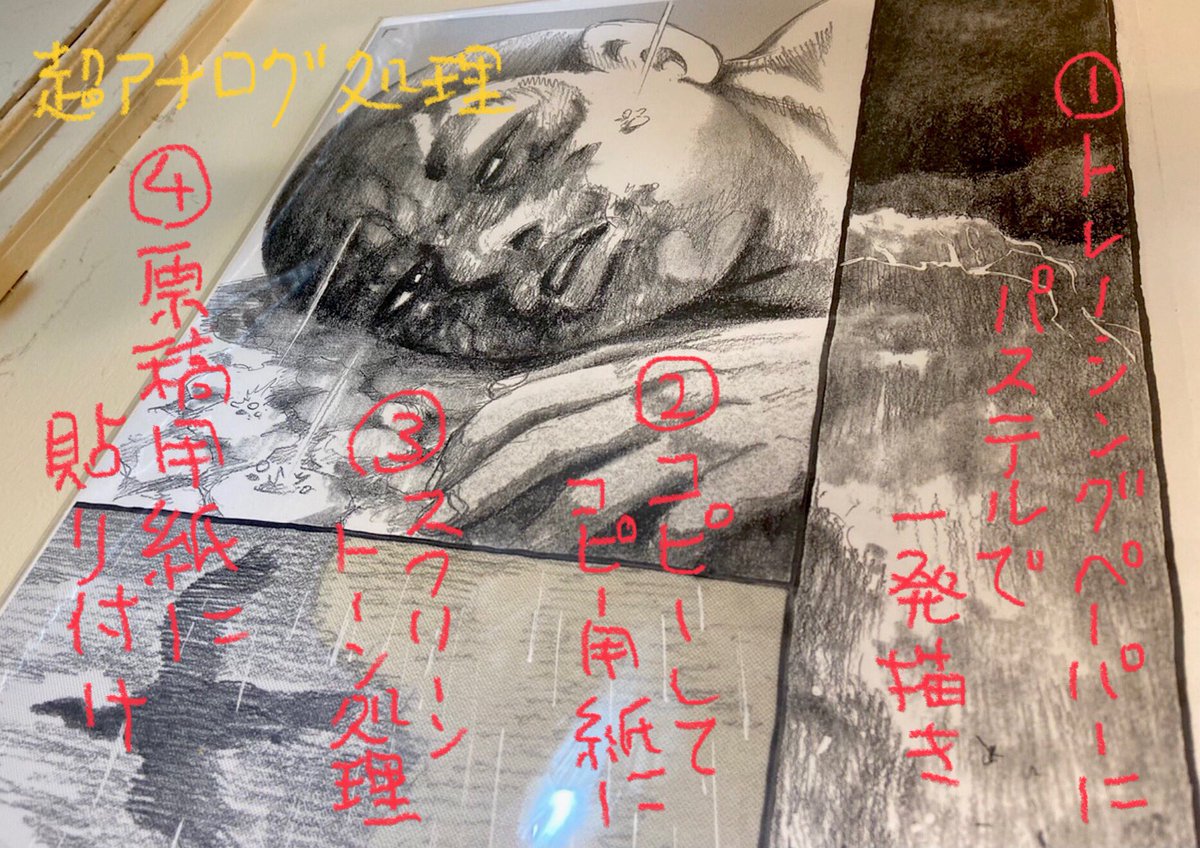 超アナログ処理
①トレーシングペーパーに
パステルで
一発描き
②コピーして
コピー用紙に
③スクリーン
トーン処理
④原稿用紙に
貼り付け